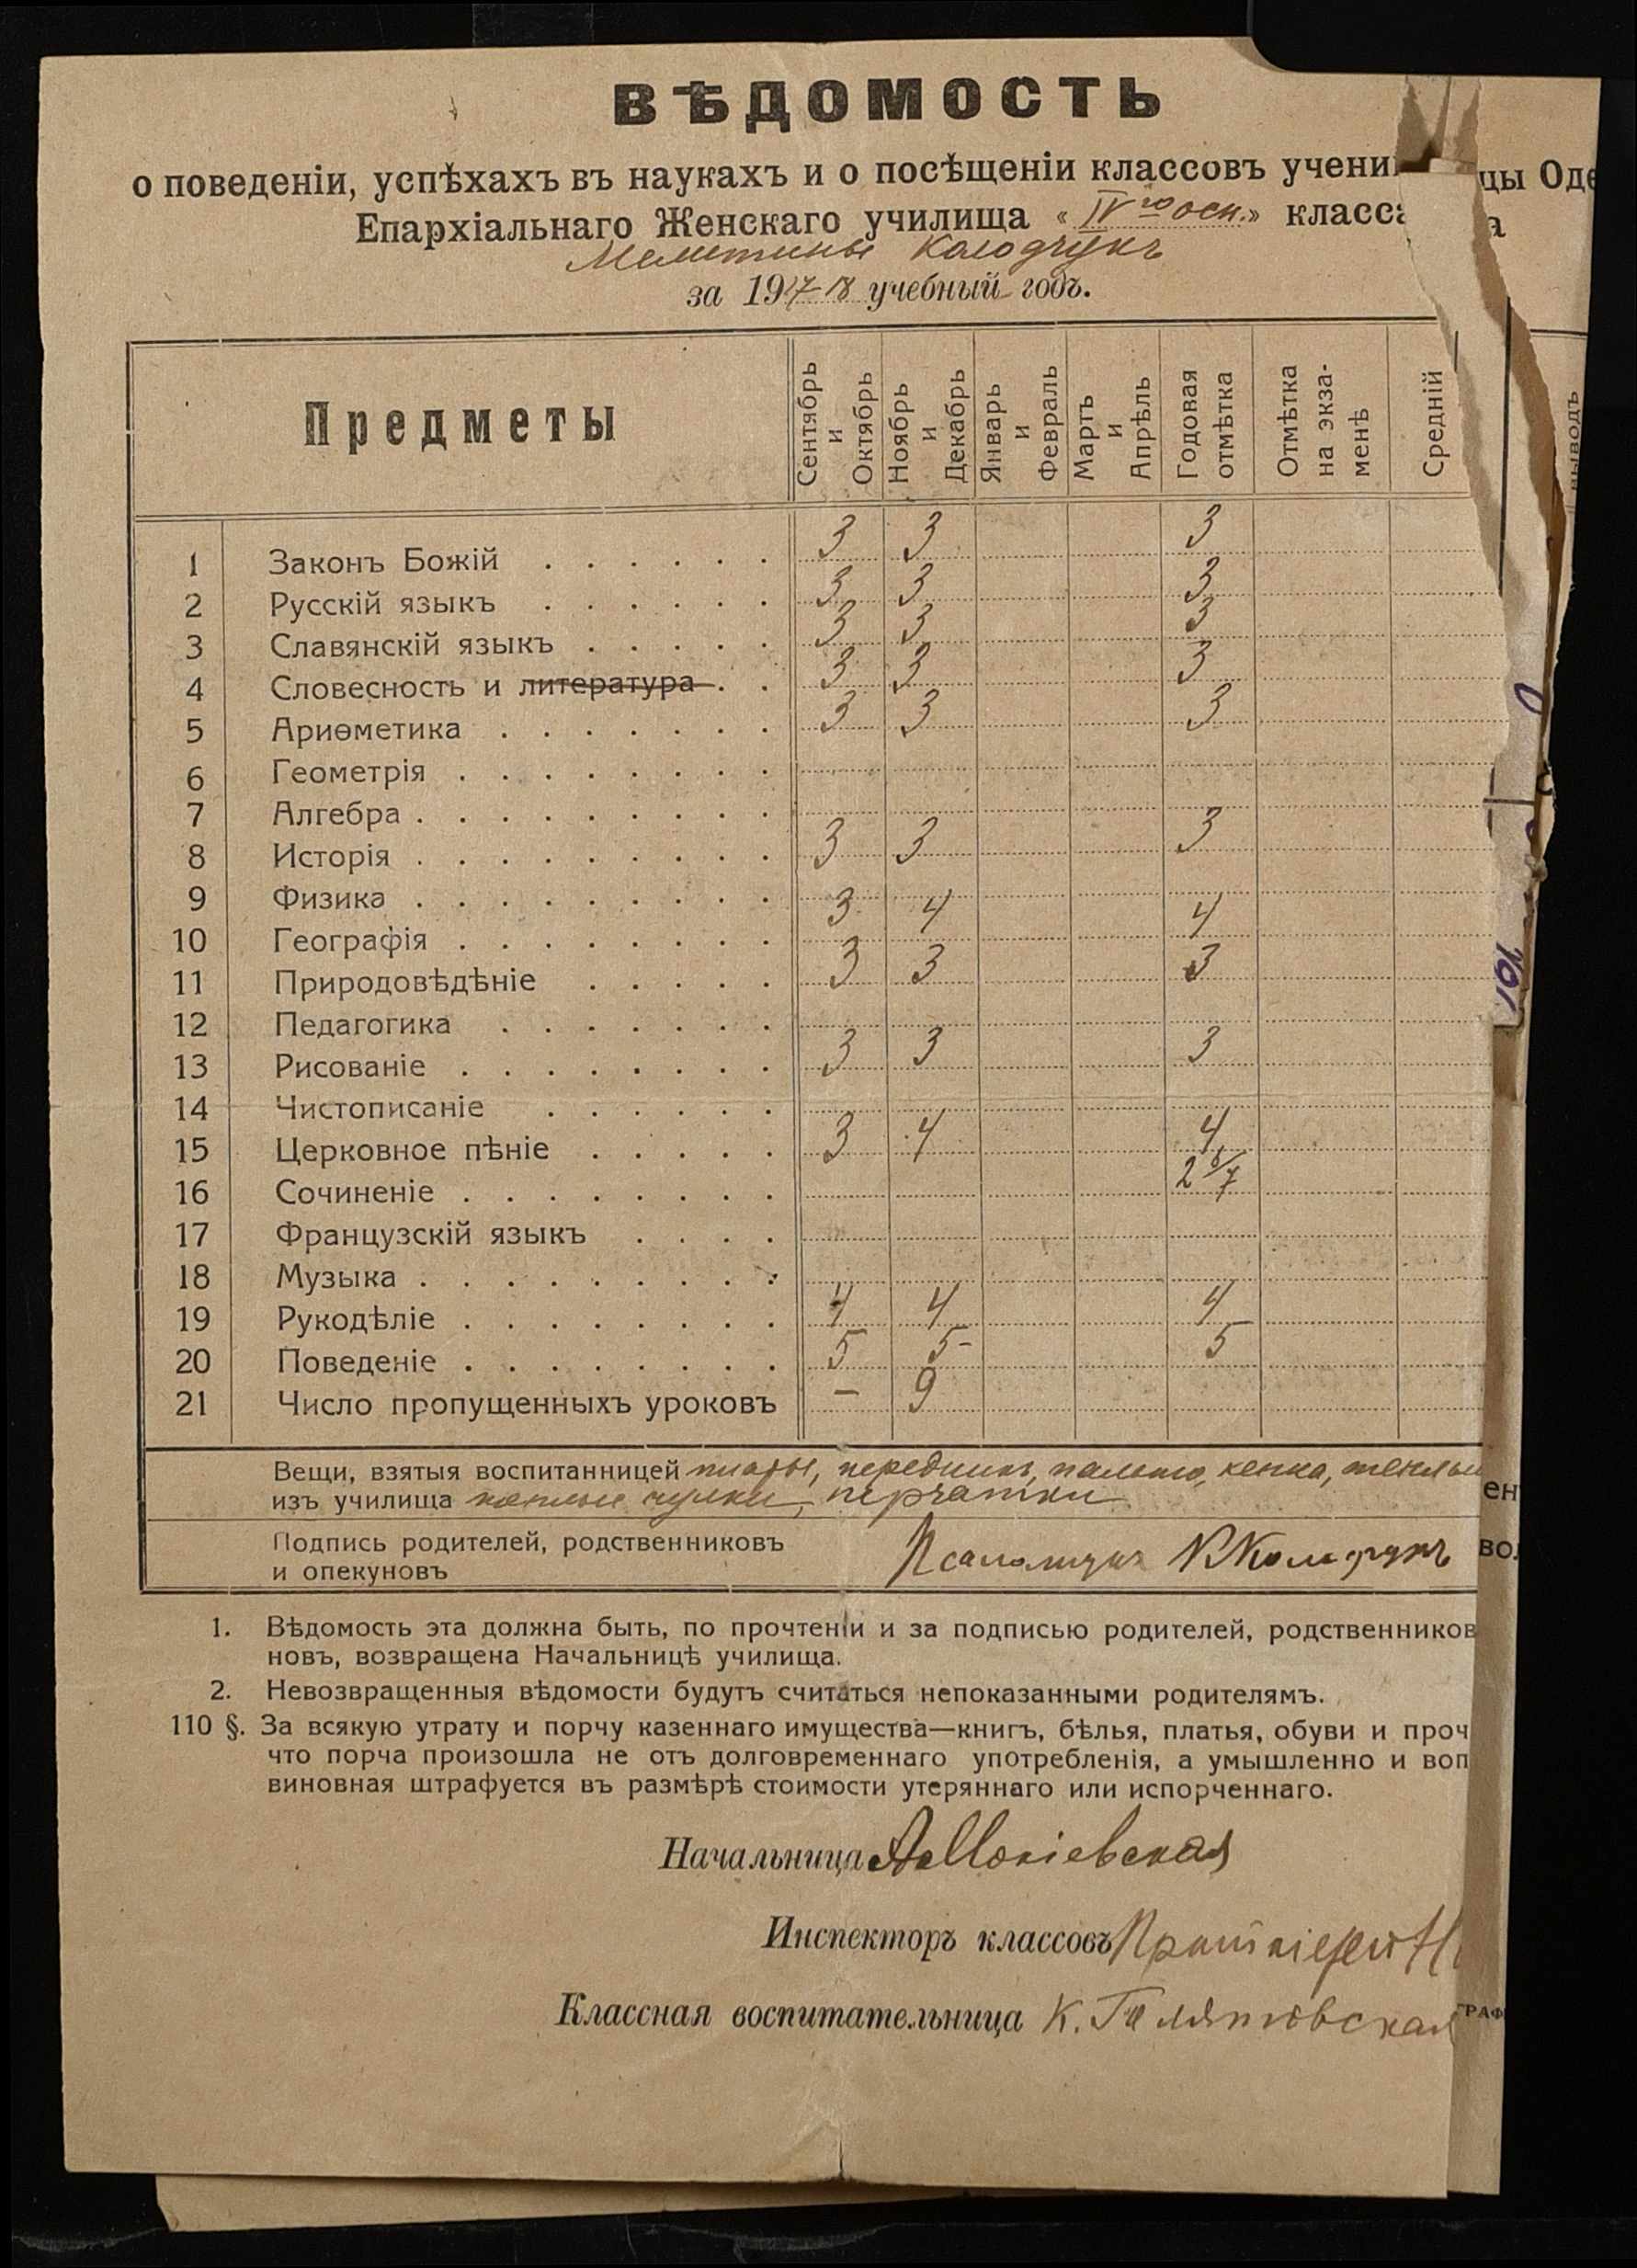 ВѢДОМОСТЬ
о поведеніи, успѣхахъ въ наукахъ и о посѣщеніи классовъ учени цы Оде
Епархіальнаго Женскаго училища « IV го осн.» класса
за 1917-18 учебный годъ.
Предметы
Сентябрь и Октябрь
Ноябрь и Декабрь
Январь и Февраль
Мартъ и Апрѣль
Годовая отмѣтка
Отмѣтка на экза- менѣ
Средній выводъ
1 Законъ Божій 3 3 3
2 Русскій языкъ 3 3 3
3 Славянскій языкъ 3 3 3
4 Словесность и литература 3 3 3
5 Ариѳметика 3 3 3
6 Геометрія
7 Алгебра
8 Исторія 3 3 3
9 Физика
10 Географія 3 4 4
11 Природовѣдѣніе 3 3 3
12 Педагогика
13 Рисованіе 3 3 3
14 Чистописаніе
15 Церковное пѣніе 3 4 4
16 Сочиненіе 2 6/7
17 Французскій языкъ
18 Музыка
19 Рукодѣліе 4 4 4
20 Поведеніе 5 5- 5
21 Число пропущенныхъ уроковъ — 9
Вещи, взятыя воспитанницей передникъ, пальто,
изъ училища теплые чулки, перчатки
Подпись родителей, родственниковъ Псаломщикъ
и опекуновъ
1. Вѣдомость эта должна быть, по прочтеніи и за подписью родителей, родственников
новъ, возвращена Начальницѣ училища.
2. Невозвращенныя вѣдомости будутъ считаться непоказанными родителямъ.
110 §. За всякую утрату и порчу казеннаго имущества—книгъ, бѣлья, платья, обуви и проч
что порча произошла не отъ долговременнаго употребленія, а умышленно и воп
виновная штрафуется въ размѣрѣ стоимости утеряннаго или испорченнаго.
Начальница
Инспекторъ классовъ
Классная воспитательница К. Галятовская